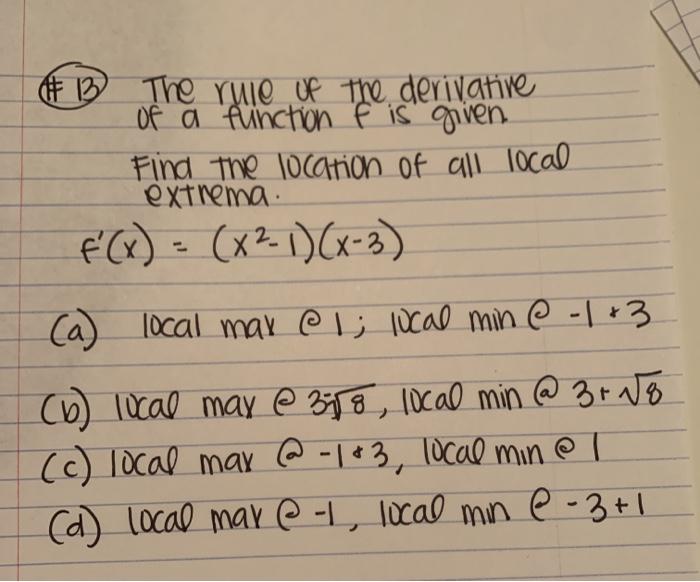 # 13 The rule of the derivative
of a function f is given
Find the location of all local
extrema.
f'(x) = (x²-1)(x-3)
(a) local max @ 1; local min @ -1 + 3
(b) local max @ 3-√8, local min @ 3+√8
(c) local max @ -1 + 3, local min @ 1
(d) local max @ -1, local min @ -3 + 1